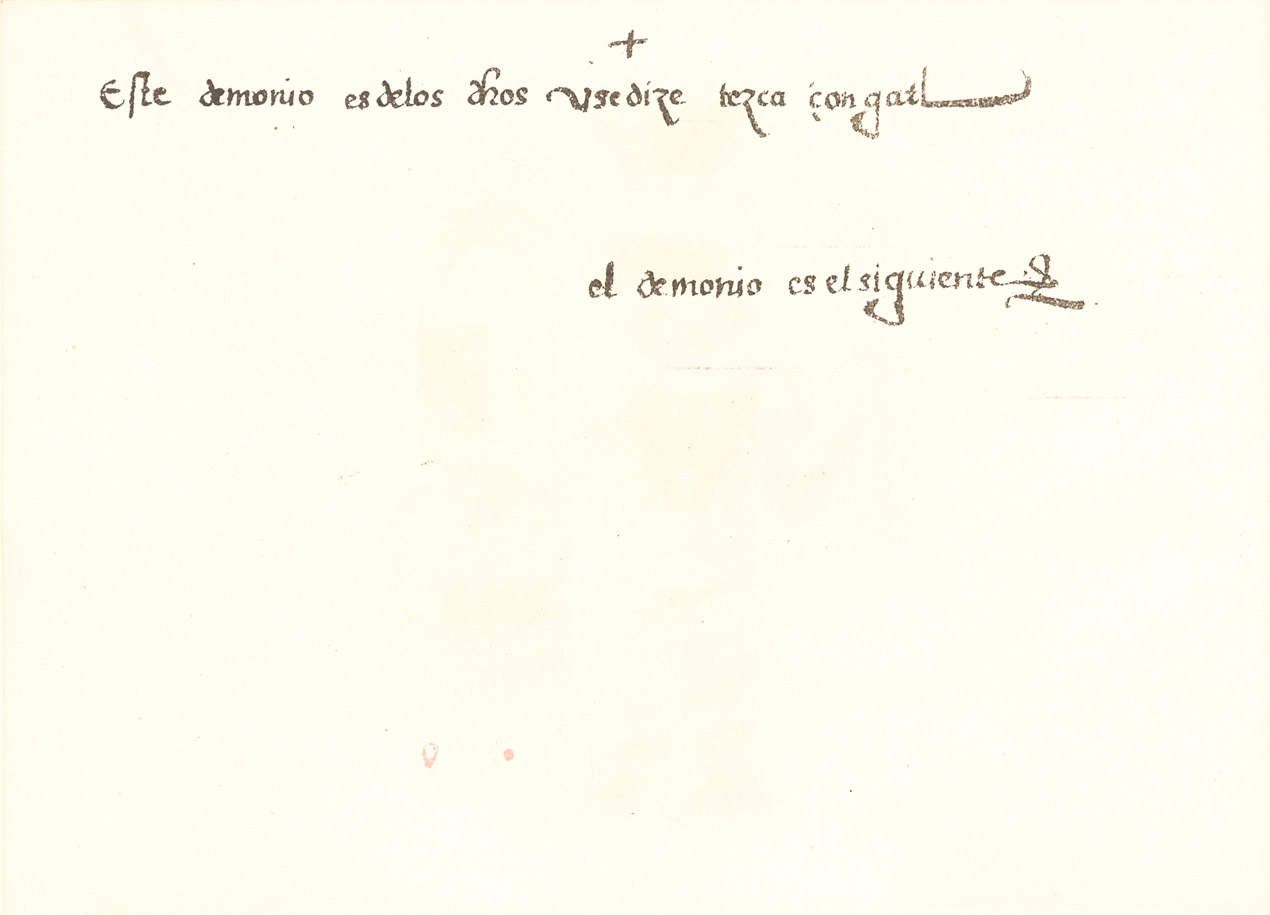 +
Este demonio es delos dhos Vsedize tezca çongatl
el demonio es el siguiente